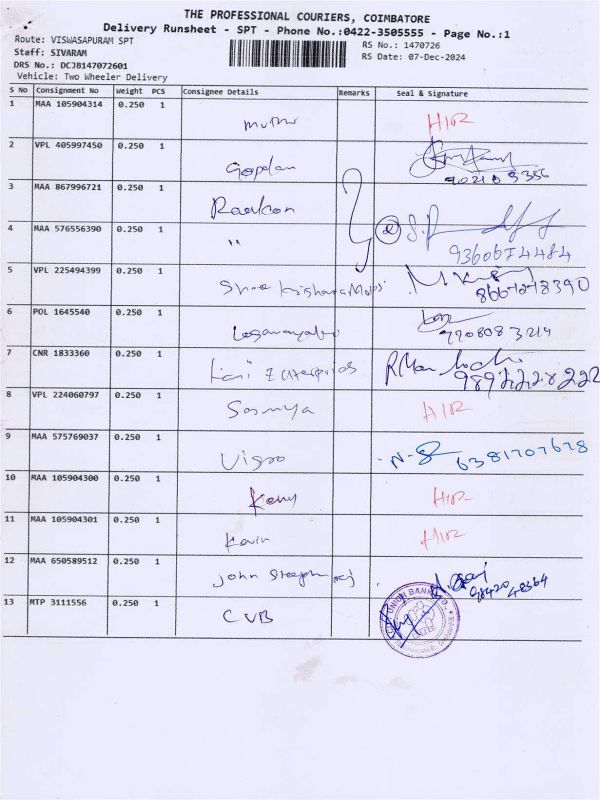 THE PROFESSIONAL COURIERS, COIMBATORE
Delivery Runsheet - SPT - Phone No.:0422-3505555 - Page No.:1
Route: VISWASAPURAM SPT
Staff: SIVARAM
DRS No.: DCJB147072601
Vehicle: Two Wheeler Delivery
RS No.: 1470726
RS Date: 07-Dec-2024
S No Consignment No Weight PCS Consignee Details Remarks Seal & Signature
1 MAA 105904314 0.250 1
muthu HIR
2 VPL 405997450 0.250 1
Gopalan
3 MAA 867996721 0.250 1
4 MAA 576556390 0.250 1
" 9360674484
5 VPL 225494399 0.250 1
Shree 8667278390
6 POL 1645540 0.250 1
9708083214
7 CNR 1833360 0.250 1
8 VPL 224060797 0.250 1
Sowmya HIR
9 MAA 575769037 0.250 1
6381707678
10 MAA 105904300 0.250 1
HIR
11 MAA 105904301 0.250 1
Kavin HIR
12 MAA 650589512 0.250 1
John
13 MTP 3111556 0.250 1
CVB
UNION BANK